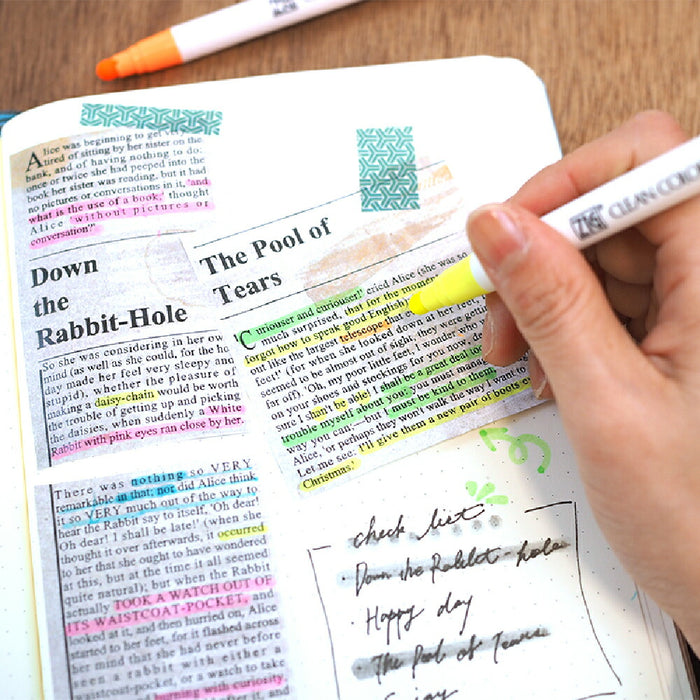 Alice was beginning to get
tired of sitting by her sister on the
bank, and of having nothing to do:
once or twice she had peeped into the
book her sister was reading, but it had
no pictures or conversations in it, 'and
what is the use of a book,' thought
Alice 'without pictures or
conversation?'
Down
the
Rabbit-Hole
So she was considering in her own
mind (as well as she could, for the ho
day made her feel very sleepy and
stupid), whether the pleasure of
making a daisy-chain would be worth
the trouble of getting up and picking
the daisies, when suddenly a White
Rabbit with pink eyes ran close by her.
There was nothing so VERY
remarkable in that; nor did Alice think
it so VERY much out of the way to
hear the Rabbit say to itself, 'Oh dear!
Oh dear! I shall be late!' (when she
thought it over afterwards, it occurred
to her that she ought to have wondered
at this, but at the time it all seemed
quite natural); but when the Rabbit
actually TOOK A WATCH OUT OF
ITS WAISTCOAT-POCKET, and
looked at it, and then hurried on, Alice
started to her feet, for it flashed across
her mind that she had never before
seen a rabbit with either a
waistcoat-pocket, or a watch to take
burning with curiosity
The Pool of
Tears
'Curiouser and curiouser!' cried Alice (she was so
much surprised, that for the moment
forgot how to speak good English)
out like the largest telescope
feet! (for when she looked down at her feet
seemed to be almost out of sight, they were getting
far off). 'Oh, my poor little feet, I wonder who
on your shoes and stockings for you now, de
sure I shan't be able! I shall be a great deal to
trouble myself about you: you must manag
way you can;—but I must be kind to them
Alice, 'or perhaps they won't walk the way I want to
Let me see: I'll give them a new pair of boots ev
Christmas.'
check list
· Down the Rabbit-hole
· Happy day
· The Pool of Tears
ZIG CLEAN COLO